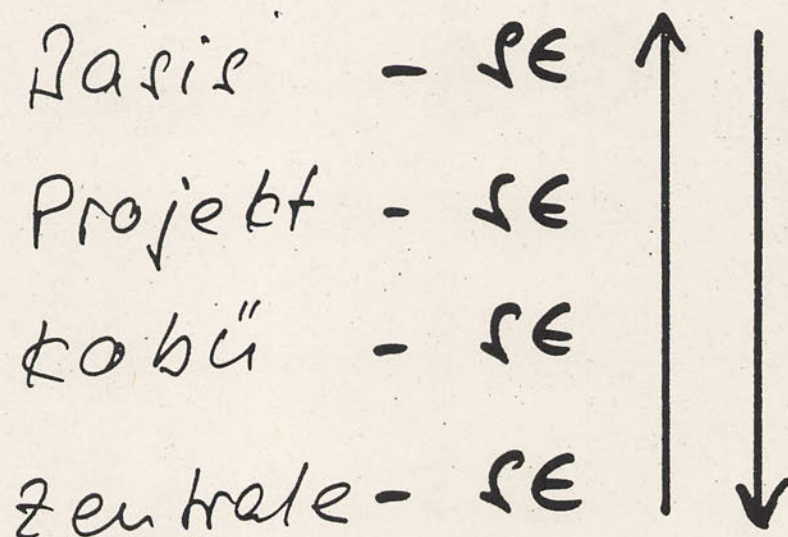 Basis - SE
Projekt - SE
Kobü - SE
Zentrale - SE